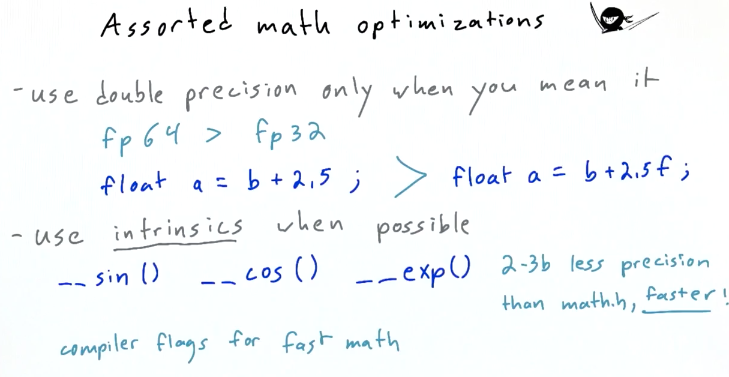 Assorted math optimizations
- use double precision only when you mean it
fp64 > fp32
float a = b + 2.5 ; > float a = b + 2.5f ;
- use intrinsics when possible
__sin() __cos() __exp() 2-3b less precision
than math.h, faster!
compiler flags for fast math